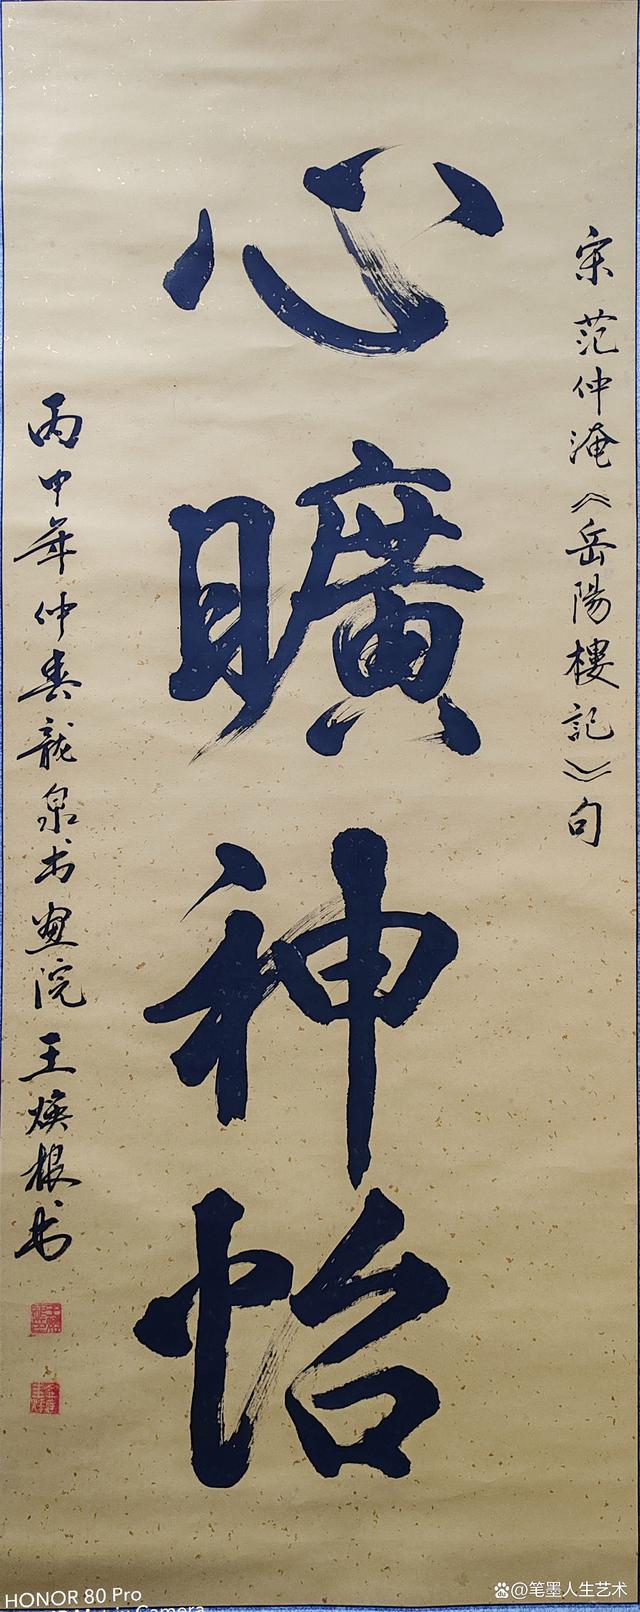 宋 范仲淹《岳陽樓記》句
心曠神怡
丙申年仲春龍泉书畫院王焕根书
HONOR 80 Pro
Camera
@笔墨人生艺术